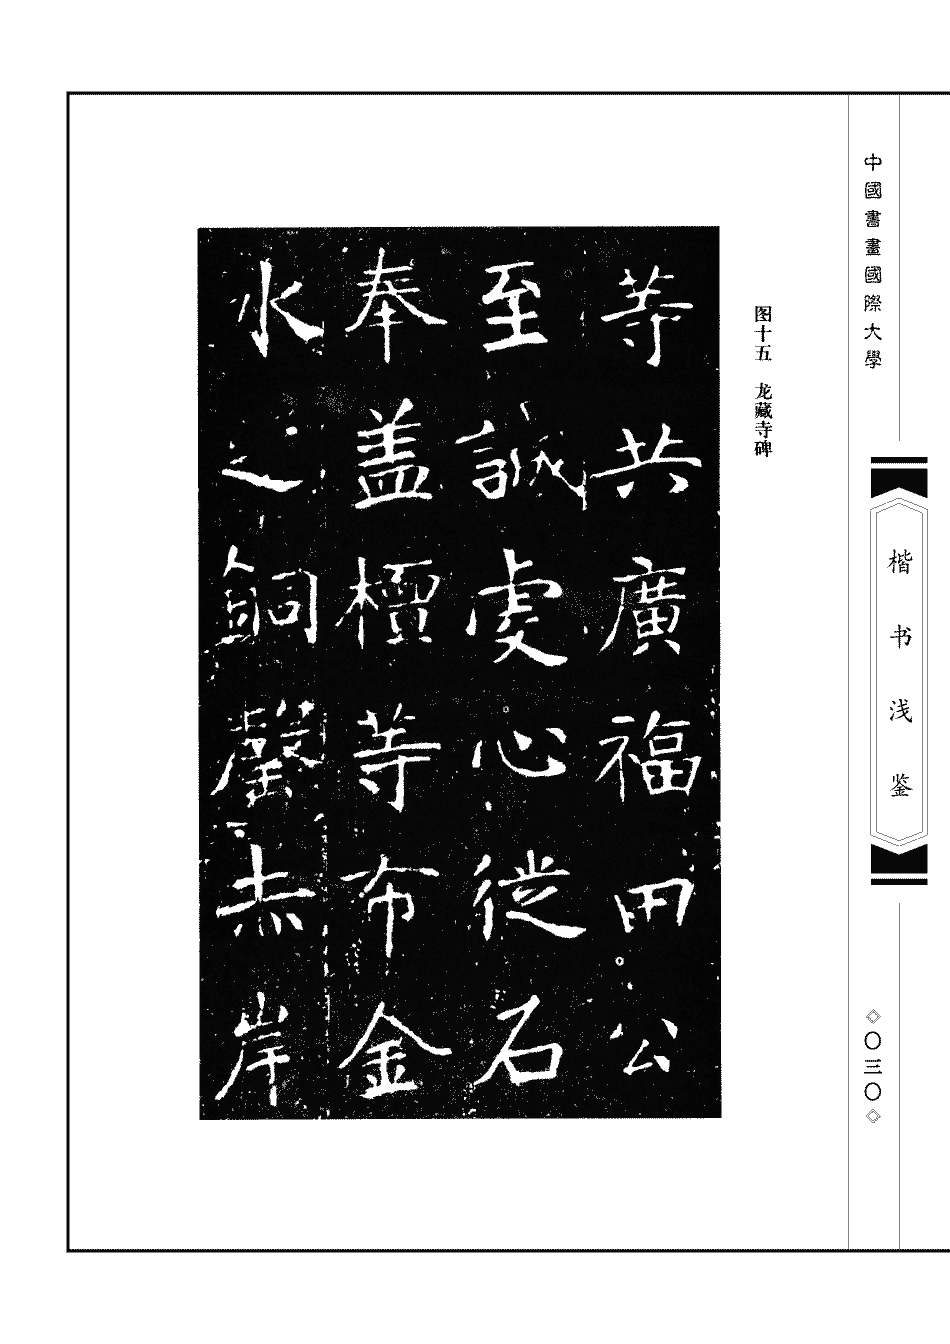 中國書畫國際大學
楷书浅鉴
◇〇三〇◇
图十五　龙藏寺碑
等共廣福田公
至誠虔心徙石
奉盖檀等布金
水之銅罄赤岸